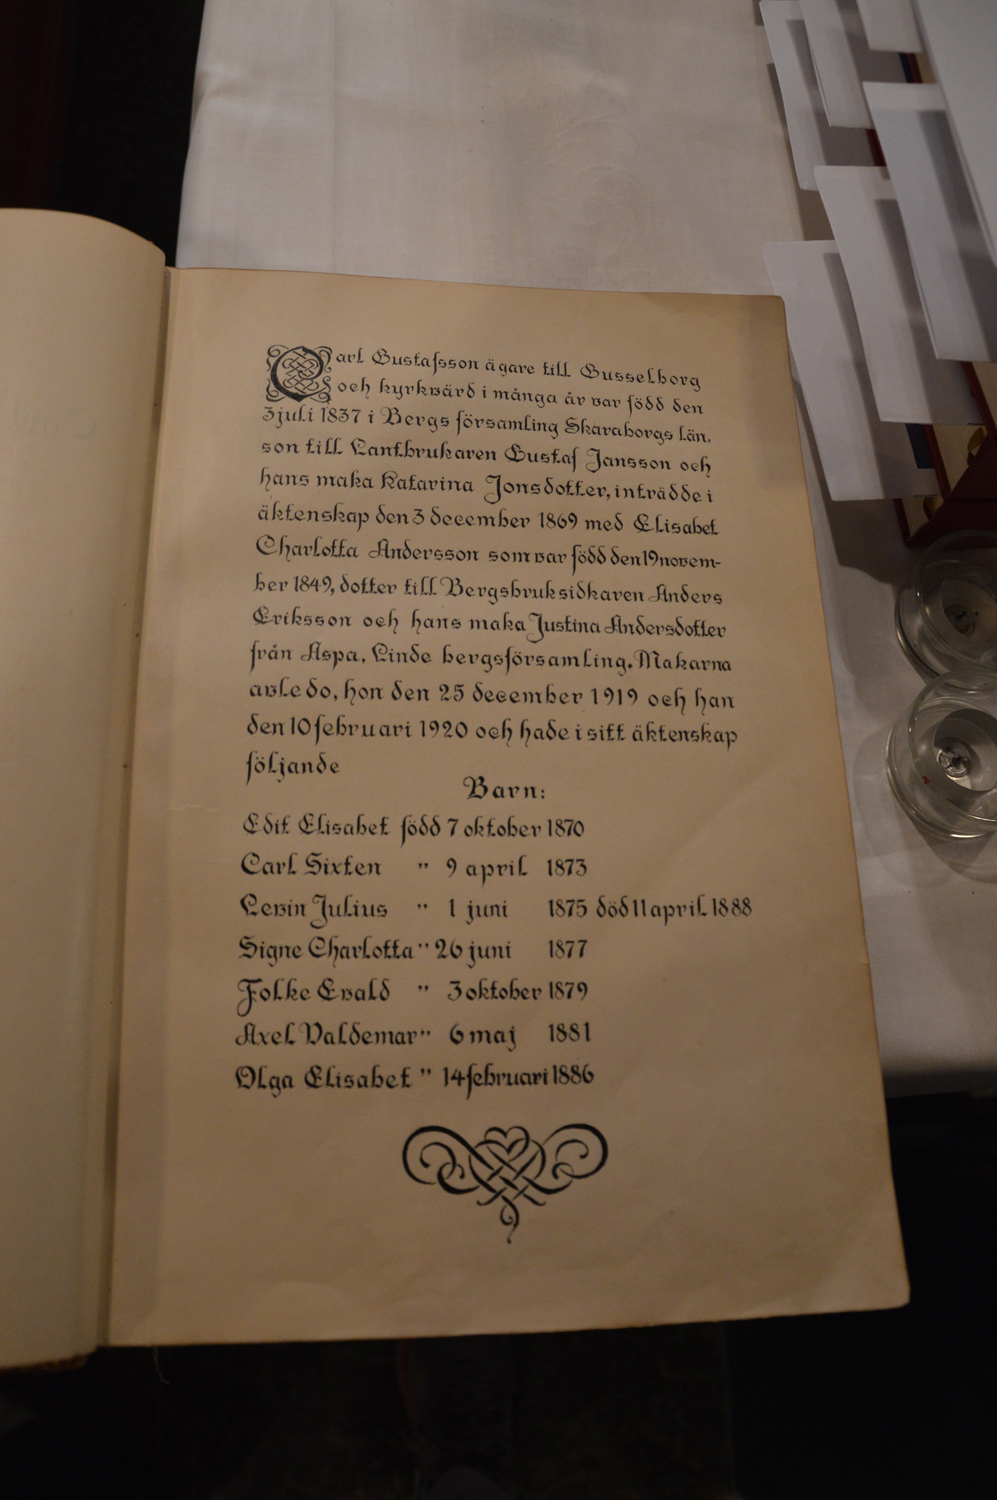 Carl Gustafsson ägare till Gusselborg
och kyrkvärd i många år var född den
3 juli 1837 i Bergs församling Skaraborgs län,
son till Lantbrukaren Gustaf Jansson och
hans maka Katarina Jonsdotter, inträdde i
äktenskap den 3 december 1869 med Elisabet
Charlotta Andersson som var född den 19 novem-
ber 1849, dotter till Bergsbruksidkaren Anders
Eriksson och hans maka Justina Andersdotter
från Aspa, Linde bergsförsamling. Makarna
avledo, hon den 25 december 1919 och han
den 10 februari 1920 och hade i sitt äktenskap
följande
Barn:
Edit Elisabet född 7 oktober 1870
Carl Sixten " 9 april 1873
Levin Julius " 1 juni 1875 död 11 april 1888
Signe Charlotta " 26 juni 1877
Folke Evald " 3 oktober 1879
Axel Valdemar " 6 maj 1881
Olga Elisabet " 14 februari 1886